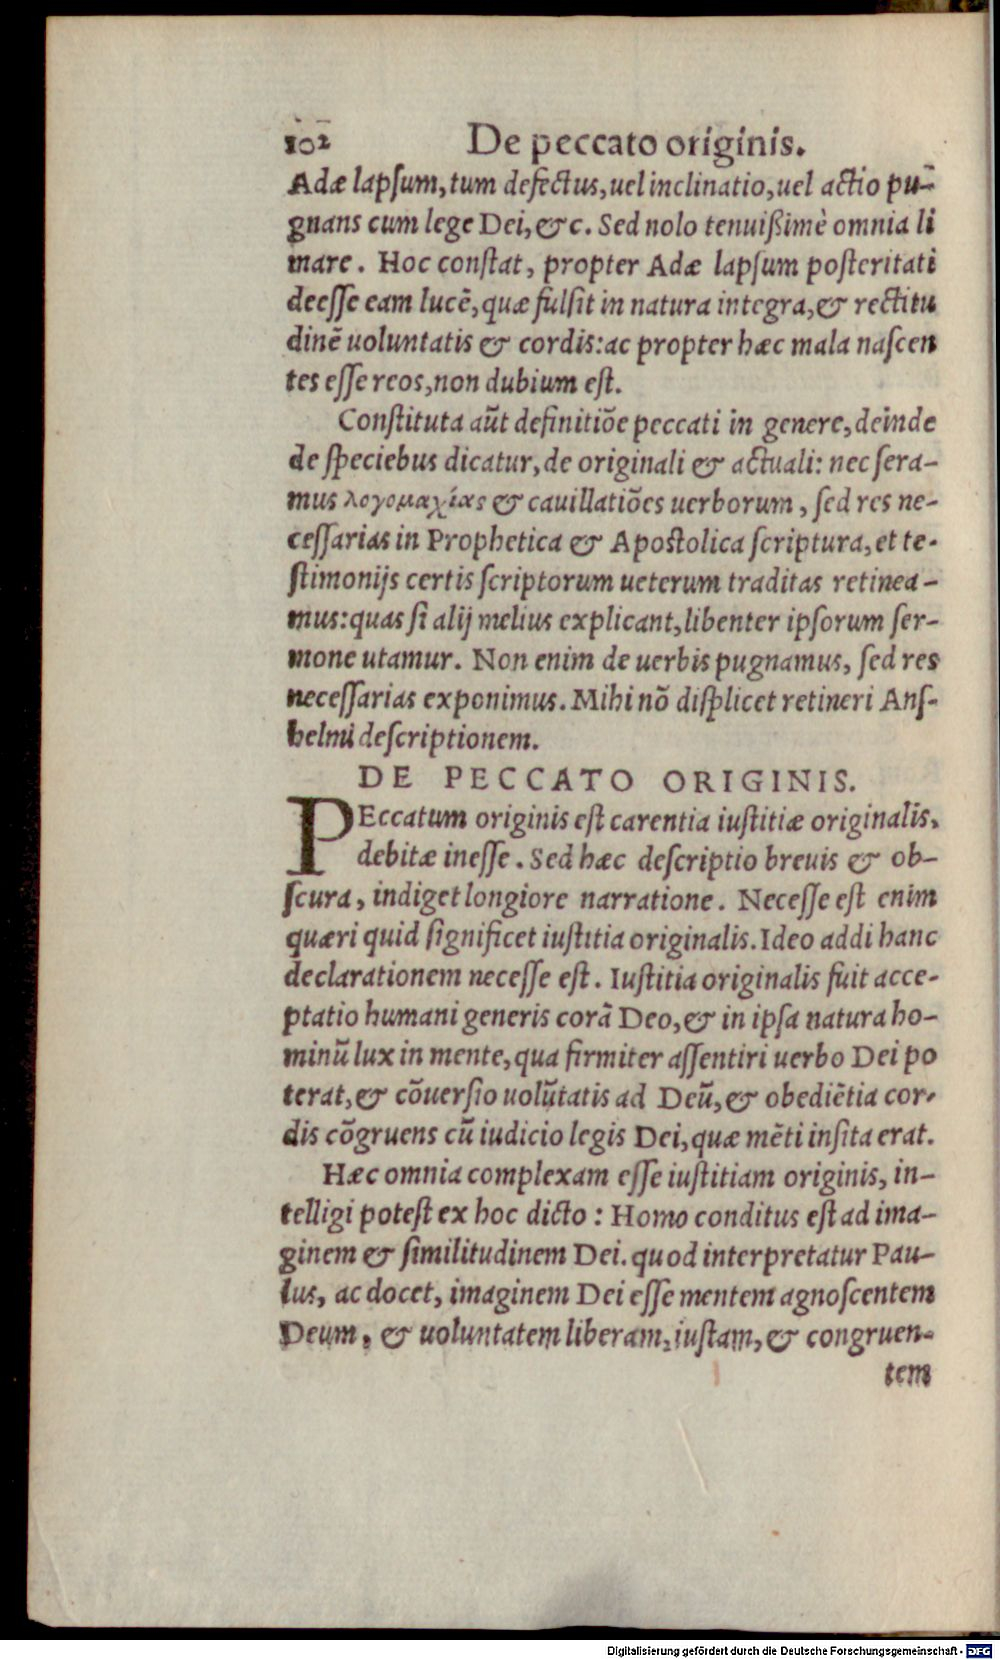 102 De peccato originis.
Adæ lapſum, tum defectus, uel inclinatio, uel actio pu-
gnans cum lege Dei, &c. Sed nolo tenuißimè omnia li
mare. Hoc conſtat, propter Adæ lapſum poſteritati
deeſſe eam lucē, quæ fulſit in natura integra, & rectitu
dinē uoluntatis & cordis: ac propter hæc mala naſcen
tes eſſe reos, non dubium eſt.
Conſtituta aūt definitiōe peccati in genere, deinde
de ſpeciebus dicatur, de originali & actuali: nec ſera-
mus λογομαχίας & cauillatiōes uerborum, ſed res ne-
ceſſarias in Prophetica & Apostolica ſcriptura, et te-
ſtimonijs certis ſcriptorum ueterum traditas retinea-
mus: quas ſi alij melius explicant, libenter ipſorum ſer-
mone utamur. Non enim de uerbis pugnamus, ſed res
neceſſarias exponimus. Mihi nō diſplicet retineri Anſ-
helmi deſcriptionem.
DE PECCATO ORIGINIS.
PEccatum originis eſt carentia iuſtitiæ originalis,
debitæ ineſſe. Sed hæc deſcriptio breuis & ob-
ſcura, indiget longiore narratione. Neceſſe eſt enim
quæri quid ſignificet iuſtitia originalis. Ideo addi hanc
declarationem neceſſe eſt. Iuſtitia originalis fuit acce-
ptatio humani generis corā Deo, & in ipſa natura ho-
minū lux in mente, qua firmiter aſſentiri uerbo Dei po
terat, & cōuerſio uolūtatis ad Deū, & obediētia cor-
dis cōgruens cū iudicio legis Dei, quæ mēti inſita erat.
Hæc omnia complexam eſſe iuſtitiam originis, in-
telligi poteſt ex hoc dicto: Homo conditus eſt ad ima-
ginem & ſimilitudinem Dei. quod interpretatur Pau-
lus, ac docet, imaginem Dei eſſe mentem agnoſcentem
Deum, & uoluntatem liberam, iuſtam, & congruen-
tem
Digitalisierung gefördert durch die Deutsche Forschungsgemeinschaft - DFG